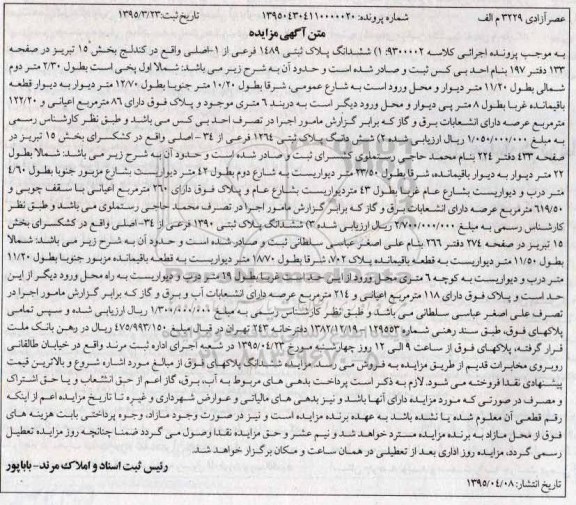 عصرآزادی ۳۲۲۹ م الف شماره پرونده: ۱۳۹۵۰۴۳۰۴۱۱۰۰۰۰۰۲۰ تاریخ ثبت: ۱۳۹۵/۳/۲۳
متن آگهی مزایده
به موجب پرونده اجرائی کلاسه ۹۳۰۰۰۰۲: ۱) ششدانگ پلاک ثبتی ۱۴۸۹ فرعی از ۱-اصلی واقع در کندلج بخش ۱۵ تبریز در صفحه
۱۳۳ دفتر ۱۹۷ بنام احد بی کس ثبت و صادر شده است و حدود آن به شرح زیر می باشد: شمالا اول پخی است بطول ۲/۳۰ متر دوم
شمالی بطول ۱۱/۲۰ متر دیوار و محل ورود است به شارع عمومی، شرقا بطول ۱۰/۲۰ متر جنوبا بطول ۱۲/۷۰ متر دیوار به دیوار قطعه
باقیمانده غربا بطول ۸ متر پی دیوار و محل ورود دیگر است به دربند ۶ متری موجود و پلاک فوق دارای ۸۶ مترمربع اعیانی و ۱۲۲/۲۰
مترمربع عرصه دارای انشعابات برق و گاز که برابر گزارش مامور اجرا در تصرف احد بی کس می باشد و طبق نظر کارشناس رسمی
به مبلغ ۱/۰۵۰/۰۰۰/۰۰۰ ریال ارزیابی شده ۲) شش دانگ پلاک ثبتی ۱۲۶۴ فرعی از ۳۴ - اصلی واقع در کشکسرای بخش ۱۵ تبریز در
صفحه ۴۳۳ دفتر ۲۲۴ بنام محمد حاجی رستملوی کشکسرای ثبت و صادر شده است و حدود آن به شرح زیر می باشد: شمالا بطول
۲۲ متر دیوار به دیوار باقیمانده، شرقا بطول ۲۳/۵۰ متر دیواریست به شارع دوم بطول ۴۲ متر دیواریست بشارع مزبور جنوبا بطول ۴/۶۰
متر درب و دیواریست بشارع عام غربا بطول ۴۳ متر دیواریست بشارع عام و پلاک فوق دارای ۲۶۰ مترمربع اعیانی با سقف چوبی و
۶۱۹/۵۰ مترمربع عرصه دارای انشعابات برق و گاز که برابر گزارش مامور اجرا در تصرف محمد حاجی رستملوی می باشد و طبق نظر
کارشناس رسمی به مبلغ ۲/۷۰۰/۰۰۰/۰۰۰ ریال ارزیابی شده ۳) ششدانگ پلاک ثبتی ۱۳۹۰ فرعی از ۳۴- اصلی واقع در کشکسرای بخش
۱۵ تبریز در صفحه ۲۷۴ دفتر ۲۶۶ بنام علی اصغر عباسی سلطانی ثبت و صادر شده است و حدود آن به شرح زیر می باشد: شمالا
بطول ۱۱/۵۰ متر دیواریست به قطعه باقیمانده پلاک ۷۰۲، شرقا بطول ۱۸/۷۰ متر دیواریست به قطعه باقیمانده مزبور جنوبا بطول ۱۱/۲۰
متر درب و دیواریست به کوچه ۶ متری محل ورود از این حد است غربا طول ۱۹ متر درب و دیواریست به راه محل ورود دیگر از این
حد است و پلاک فوق دارای ۱۱۸ مترمربع اعیانی و ۲۱۴ مترمربع عرصه دارای انشعابات آب و برق و گاز که برابر گزارش مامور اجرا در
تصرف علی اصغر عباسی سلطانی می باشد و طبق نظر کارشناس رسمی به مبلغ ۱/۳۰۰/۰۰۰/۰۰۰ ریال ارزیابی شده و سپس تمامی
پلاکهای فوق، طبق سند رهنی شماره ۱۲۹۵۵۳ - ۱۳۸۷/۱۲/۱۹ دفترخانه ۲۴۳ تهران در قبال مبلغ ۴۷۵/۹۹۳/۱۵۰ ریال در رهن بانک ملت
قرار گرفته، پلاکهای فوق از ساعت ۹ الی ۱۲ روز چهارشنبه مورخ ۱۳۹۵/۰۴/۲۳ در شعبه اجرای اداره ثبت مرند واقع در خیابان طالقانی
روبروی مخابرات قدیم از طریق مزایده به فروش می رسد. مزایده ششدانگ پلاکهای فوق از مبالغ مورد اشاره شروع و بالاترین قیمت
پیشنهادی نقدا فروخته می شود. لازم به ذکر است پرداخت بدهی های مربوط به آب، برق، گاز اعم از حق انشعاب و یا حق اشتراک
و مصرف در صورتی که مورد مزایده دارای آنها باشد و نیز بدهی های مالیاتی و عوارض شهرداری و غیره تا تاریخ مزایده اعم از اینکه
رقم قطعی آن معلوم شده یا نشده باشد به عهده برنده مزایده است و نیز در صورت وجود مازاد، وجوه پرداختی بابت هزینه های
فوق از محل مازاد به برنده مزایده مسترد خواهد شد و نیم عشر و حق مزایده نقدا وصول می گردد ضمنا چنانچه روز مزایده تعطیل
رسمی گردد، مزایده روز اداری بعد از تعطیلی در همان ساعت و مکان برگزار خواهد شد.
رئیس ثبت اسناد و املاک مرند- باباپور
تاریخ انتشار: ۱۳۹۵/۰۴/۰۸